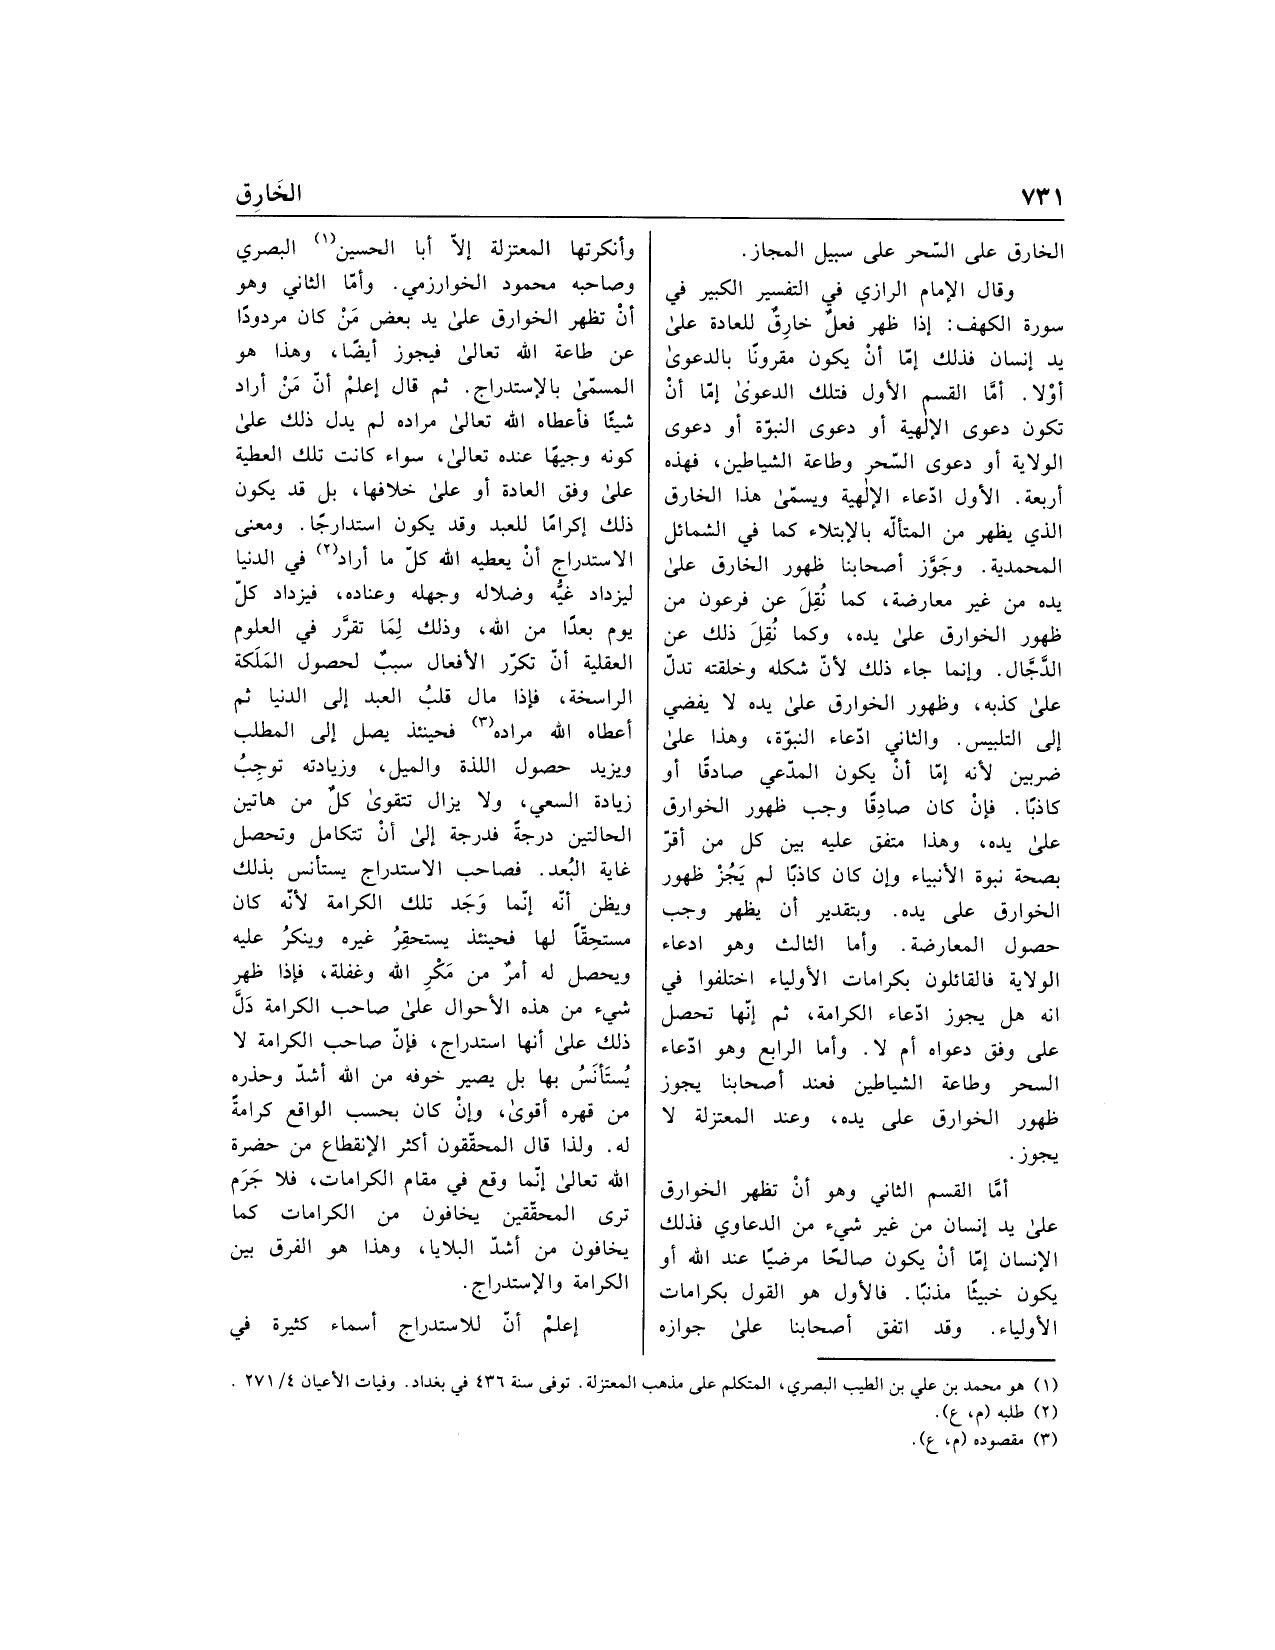 ٧٣١
الخَارِق
الخارق على السّحر على سبيل المجاز.
وقال الإمام الرازي في التفسير الكبير في
سورة الكهف: إذا ظهر فعلٌ خارِقٌ للعادة علىٰ
يد إنسان فذلك إمّا أنْ يكون مقرونًا بالدعوىٰ
أوْلا. أمَّا القسم الأول فتلك الدعوىٰ إمّا أنْ
تكون دعوى الإلٰهية أو دعوى النبوّة أو دعوى
الولاية أو دعوى السّحر وطاعة الشياطين، فهذه
أربعة. الأول ادّعاء الإلٰهية ويسمّىٰ هذا الخارق
الذي يظهر من المتألّه بالإبتلاء كما في الشمائل
المحمدية. وجَوَّز أصحابنا ظهور الخارق علىٰ
يده من غير معارضة، كما نُقِلَ عن فرعون من
ظهور الخوارق علىٰ يده، وكما نُقِلَ ذلك عن
الدَّجَّال. وإنما جاء ذلك لأنّ شكله وخلقته تدلّ
علىٰ كذبه، وظهور الخوارق علىٰ يده لا يفضي
إلى التلبيس. والثاني ادّعاء النبوّة، وهذا علىٰ
ضربين لأنه إمّا أنْ يكون المدّعي صادقًا أو
كاذبًا. فإنْ كان صادِقًا وجب ظهور الخوارق
علىٰ يده، وهذا متفق عليه بين كل من أقرّ
بصحة نبوة الأنبياء وإن كان كاذبًا لم يَجُزْ ظهور
الخوارق على يده. وبتقدير أن يظهر وجب
حصول المعارضة. وأما الثالث وهو ادعاء
الولاية فالقائلون بكرامات الأولياء اختلفوا في
انه هل يجوز ادّعاء الكرامة، ثم إنّها تحصل
على وفق دعواه أم لا. وأما الرابع وهو ادّعاء
السحر وطاعة الشياطين فعند أصحابنا يجوز
ظهور الخوارق على يده، وعند المعتزلة لا
يجوز.
أمَّا القسم الثاني وهو أنْ تظهر الخوارق
علىٰ يد إنسان من غير شيء من الدعاوي فذلك
الإنسان إمّا أنْ يكون صالحًا مرضيًا عند الله أو
يكون خبيثًا مذنبًا. فالأول هو القول بكرامات
الأولياء. وقد اتفق أصحابنا علىٰ جوازه
وأنكرتها المعتزلة إلاّ أبا الحسين(١) البصري
وصاحبه محمود الخوارزمي. وأمّا الثاني وهو
أنْ تظهر الخوارق علىٰ يد بعض مَنْ كان مردودًا
عن طاعة الله تعالىٰ فيجوز أيضًا، وهذا هو
المسمّىٰ بالإستدراج. ثم قال إعلمْ أنّ مَنْ أراد
شيئًا فأعطاه الله تعالىٰ مراده لم يدل ذلك علىٰ
كونه وجيهًا عنده تعالىٰ، سواء كانت تلك العطية
علىٰ وفق العادة أو علىٰ خلافها، بل قد يكون
ذلك إكرامًا للعبد وقد يكون استدارجًا. ومعنى
الاستدراج أنْ يعطيه الله كلّ ما أراد(٢) في الدنيا
ليزداد غيُّه وضلاله وجهله وعناده، فيزداد كلّ
يوم بعدًا من الله، وذلك لِمَا تقرَّر في العلوم
العقلية أنّ تكرّر الأفعال سببٌ لحصول المَلَكة
الراسخة، فإذا مال قلبُ العبد إلى الدنيا ثم
أعطاه الله مراده(٣) فحينئذ يصل إلى المطلب
ويزيد حصول اللذة والميل، وزيادته توجِبُ
زيادة السعي، ولا يزال تتقوىٰ كلٌ من هاتين
الحالتين درجةً فدرجة إلىٰ أنْ تتكامل وتحصل
غاية البُعد. فصاحب الاستدراج يستأنس بذلك
ويظن أنّه إنّما وَجَد تلك الكرامة لأنّه كان
مستحِقّاً لها فحينئذ يستحقِرُ غيره وينكرُ عليه
ويحصل له أمرٌ من مَكْرِ الله وغفلة، فإذا ظهر
شيء من هذه الأحوال علىٰ صاحب الكرامة دَلَّ
ذلك علىٰ أنها استدراج، فإنّ صاحب الكرامة لا
يُستَأنَسُ بها بل يصير خوفه من الله أشدّ وحذره
من قهره أقوىٰ، وإنْ كان بحسب الواقع كرامةً
له. ولذا قال المحقّقون أكثر الإنقطاع من حضرة
الله تعالىٰ إنّما وقع في مقام الكرامات، فلا جَرَم
ترى المحقّقين يخافون من الكرامات كما
يخافون من أشدّ البلايا، وهذا هو الفرق بين
الكرامة والإستدراج.
إعلمْ أنّ للاستدراج أسماء كثيرة في
(١) هو محمد بن علي بن الطيب البصري، المتكلم على مذهب المعتزلة. توفى سنة ٤٣٦ في بغداد. وفيات الأعيان ٤/ ٢٧١ .
(٢) طلبه (م، ع).
(٣) مقصوده (م، ع).